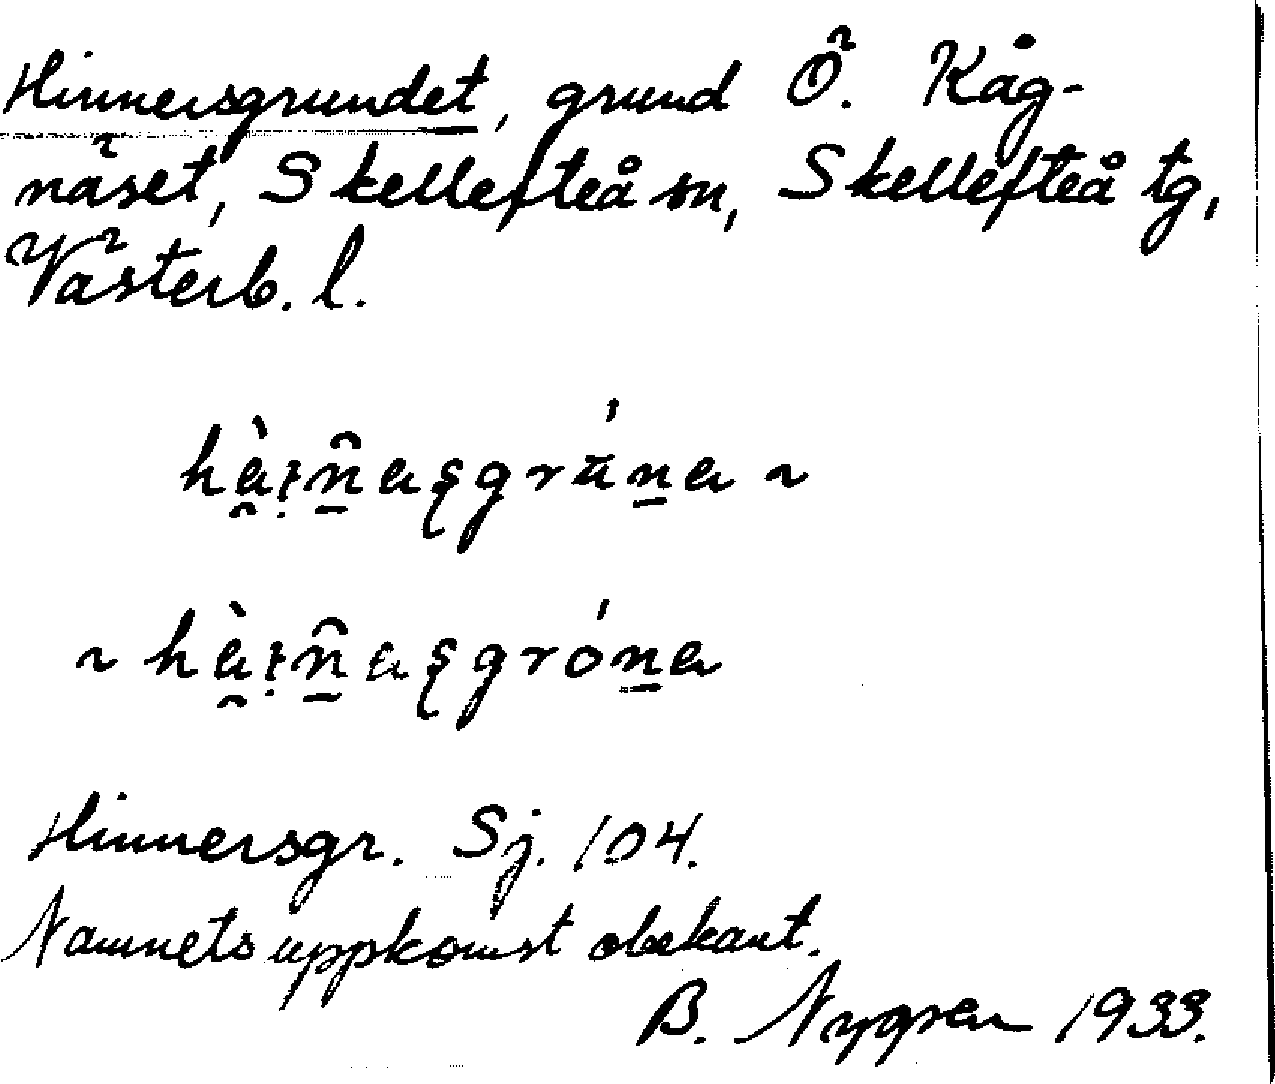 Hinnersgrundet, grund Ö. Kåg-
näset, Skellefteå sn, Skellefteå tg,
Västerb. l.
~
~
Hinnersgr. Sj. 104.
Namnets uppkomst obekant.
B. Nygren 1933.